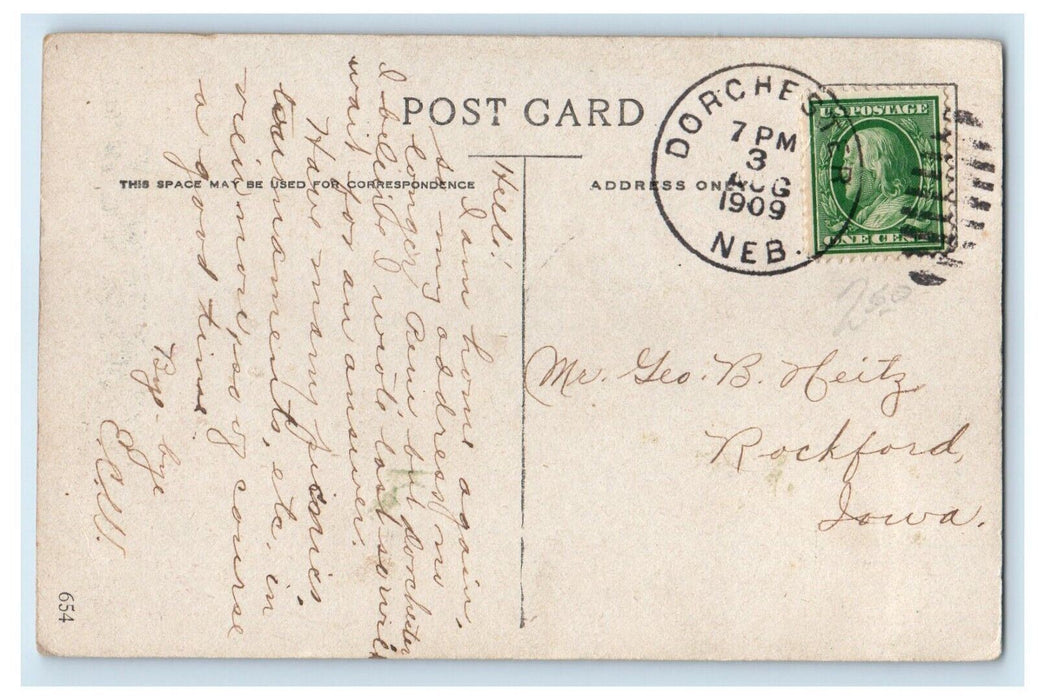 POST CARD
THIS SPACE MAY BE USED FOR CORRESPONDENCE
ADDRESS ONLY
DORCHESTER
7 PM
3
AUG
1909
NEB.
U.S. POSTAGE
ONE CENT
250
Mr. Geo. B. Heitz
Rockford,
Iowa.
Hello!
I am home again,
so my address no
longer but Dorchester
I believe I wrote last so will
wait for an answer.
Have many picnics
tournaments, etc. in
view now, so of course
a good time
Bye-bye
654